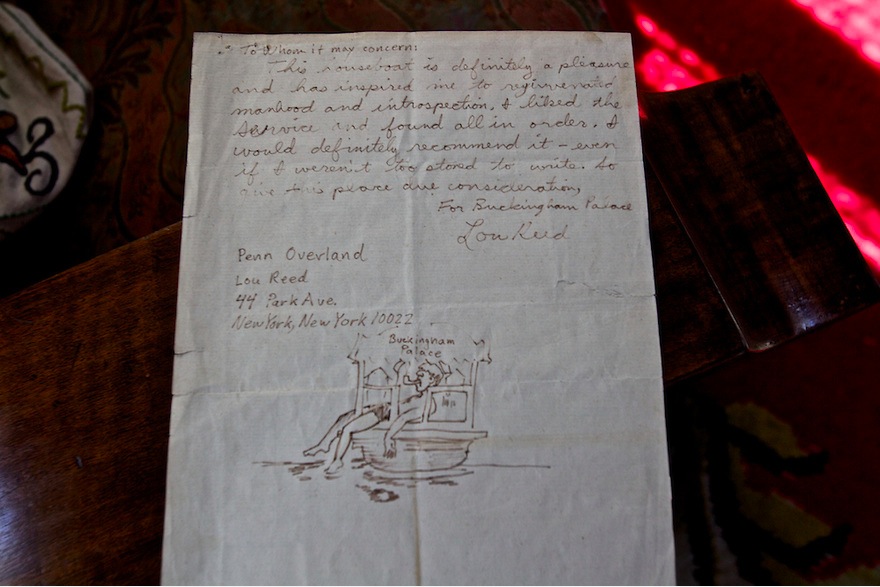 To Whom it may concern:
This houseboat is definitely a pleasure
and has inspired me to rejuvenated
manhood and introspection. I liked the
service and found all in order. I
would definitely recommend it – even
if I weren't too stoned to write. So
give this place due consideration,
For Buckingham Palace
Lou Reed
Penn Overland
Lou Reed
44 Park Ave.
New York, New York 10022
Buckingham
Palace